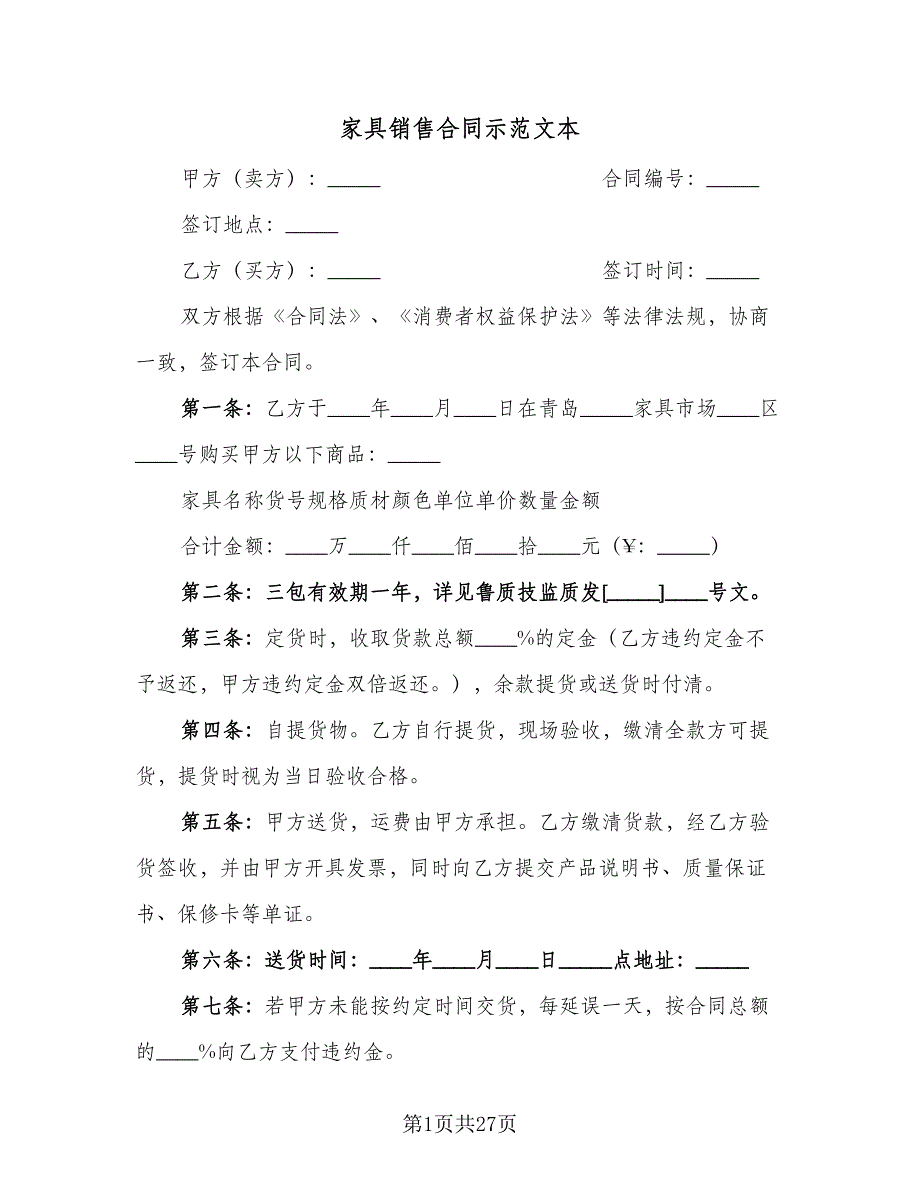 家具销售合同示范文本
甲方（卖方）：_____ 合同编号：_____
签订地点：_____
乙方（买方）：_____ 签订时间：_____
双方根据《合同法》、《消费者权益保护法》等法律法规，协商
一致，签订本合同。
第一条：乙方于____年____月____日在青岛_____家具市场____区
____号购买甲方以下商品：_____
家具名称货号规格质材颜色单位单价数量金额
合计金额：____万____仟____佰____拾____元（¥：_____）
第二条：三包有效期一年，详见鲁质技监质发[_____]____号文。
第三条：定货时，收取货款总额____%的定金（乙方违约定金不
予返还，甲方违约定金双倍返还。），余款提货或送货时付清。
第四条：自提货物。乙方自行提货，现场验收，缴清全款方可提
货，提货时视为当日验收合格。
第五条：甲方送货，运费由甲方承担。乙方缴清货款，经乙方验
货签收，并由甲方开具发票，同时向乙方提交产品说明书、质量保证
书、保修卡等单证。
第六条：送货时间：____年____月____日_____点地址：_____
第七条：若甲方未能按约定时间交货，每延误一天，按合同总额
的____%向乙方支付违约金。
第1页共27页